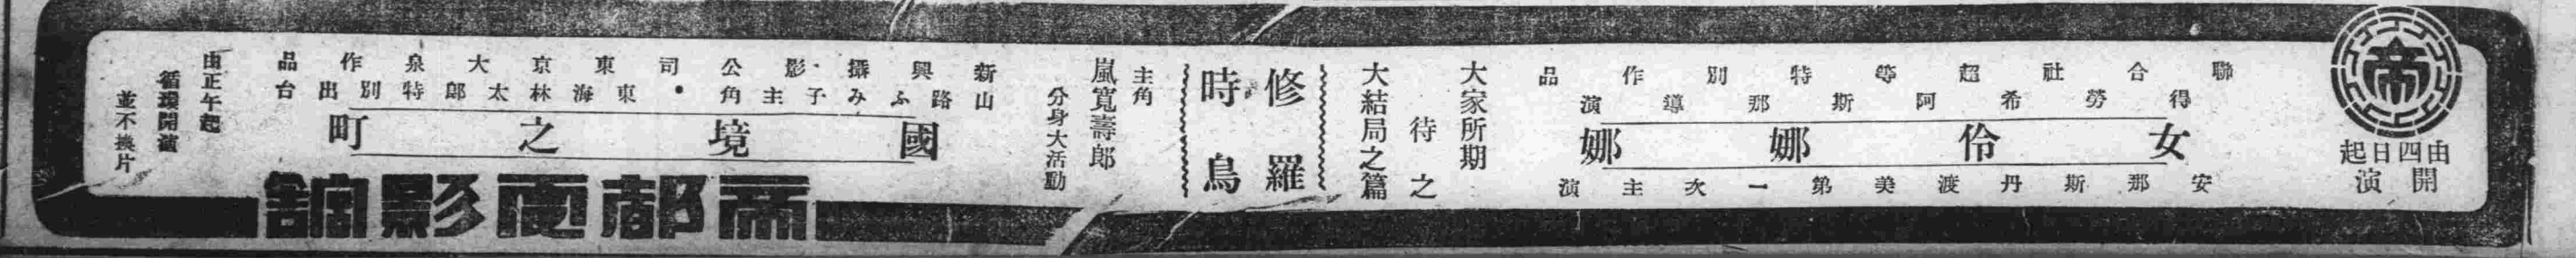 帝
由四日起
開演
聯合社超等特別作品
得勞希阿斯那導演
女伶娜娜
安那斯丹渡美第一次主演
大家所期
待之
大結局之篇
修羅
時鳥
主角
嵐寬壽郎
分身大活動
新興攝影公司東京大泉作品
山路ふみ子主角・東海林太郎特別出台
國境之町
由正午起
循環開演
並不換片
帝都電影館